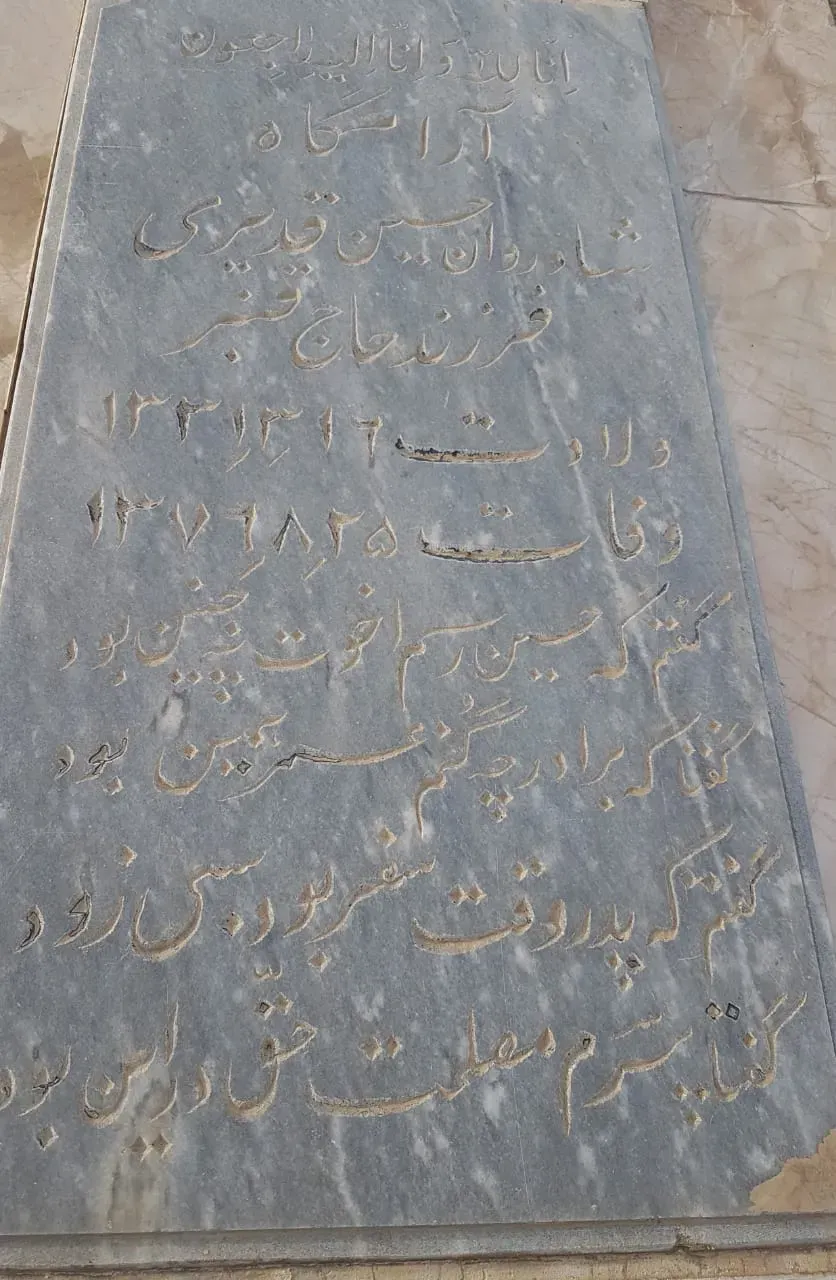 اِنّا لِلّه وَ اِنّا اِلیه راجعون
آرامگاه
شادروان حسین قدیری
فرزند حاج قنبر
ولادت ۱۳۳۱٫۳٫۱۶
وفات ۱۳۷۶٫۸٫۲۵
گفتم که حسین رسم اخوت نه چنین بود
گفتا که برادر چه کنم عمر همین بود
گفتم که پدر وقت سفر بود بسی زود
گفتا پسرم مصلحت حقّ در این بود